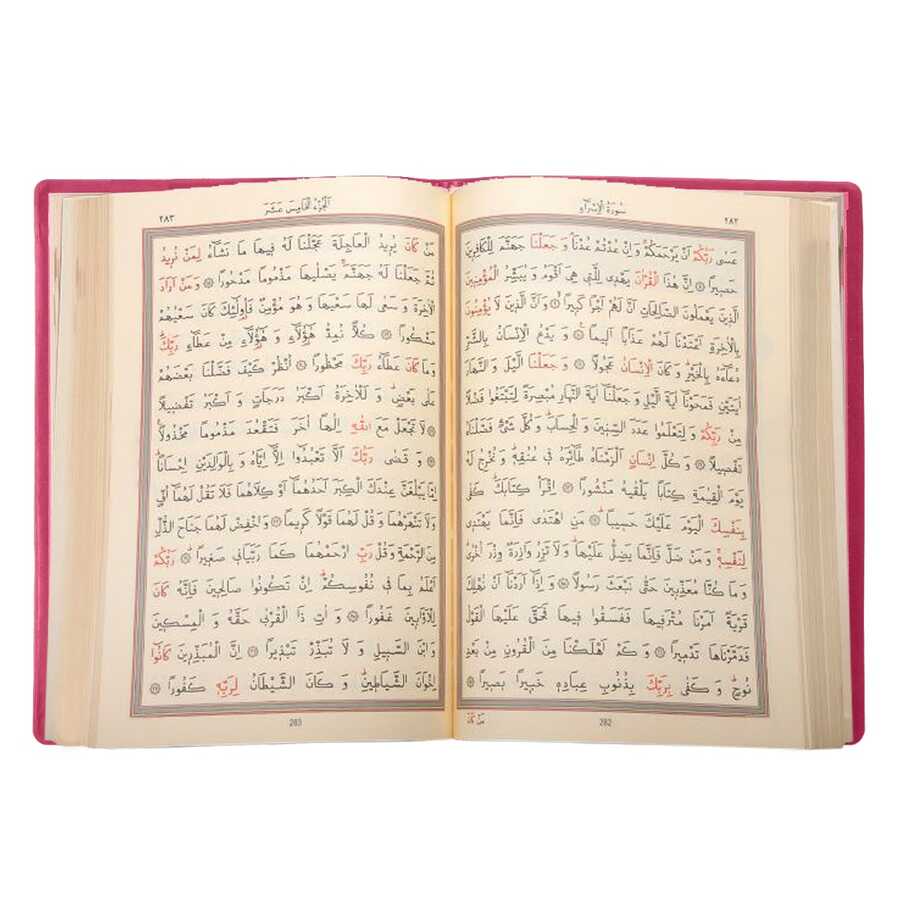 سُورَةُ الْاِسْرَاءِ
٢٨٢
عَسٰى رَبُّكُمْ اَنْ يَرْحَمَكُمْۚ وَاِنْ عُدْتُمْ عُدْنَاۢ وَجَعَلْنَا جَهَنَّمَ لِلْكَافِرٖينَ
حَصٖيرًا ۝ اِنَّ هٰذَا الْقُرْاٰنَ يَهْدٖى لِلَّتٖى هِىَ اَقْوَمُ وَيُبَشِّرُ الْمُؤْمِنٖينَ
الَّذٖينَ يَعْمَلُونَ الصَّالِحَاتِ اَنَّ لَهُمْ اَجْرًا كَبٖيرًا ۝ وَاَنَّ الَّذٖينَ لَا يُؤْمِنُونَ
بِالْاٰخِرَةِ اَعْتَدْنَا لَهُمْ عَذَابًا اَلٖيمًا ۝ وَيَدْعُ الْاِنْسَانُ بِالشَّرِّ
دُعَٓاءَهُ بِالْخَيْرِۜ وَكَانَ الْاِنْسَانُ عَجُولًا ۝ وَجَعَلْنَا الَّيْلَ وَالنَّهَارَ
اٰيَتَيْنِ فَمَحَوْنَٓا اٰيَةَ الَّيْلِ وَجَعَلْنَٓا اٰيَةَ النَّهَارِ مُبْصِرَةً لِتَبْتَغُوا فَضْلًا
مِنْ رَبِّكُمْ وَلِتَعْلَمُوا عَدَدَ السِّنٖينَ وَالْحِسَابَۜ وَكُلَّ شَیْءٍ فَصَّلْنَاهُ
تَفْصٖيلًا ۝ وَكُلَّ اِنْسَانٍ اَلْزَمْنَاهُ طَٓائِرَهُ فٖى عُنُقِهٖۜ وَنُخْرِجُ لَهُ
يَوْمَ الْقِيٰمَةِ كِتَابًا يَلْقٰيهُ مَنْشُورًا ۝ اِقْرَأْ كِتَابَكَۜ كَفٰى
بِنَفْسِكَ الْيَوْمَ عَلَيْكَ حَسٖيبًاۜ ۝ مَنِ اهْتَدٰى فَاِنَّمَا يَهْتَدٖى
لِنَفْسِهٖۚ وَمَنْ ضَلَّ فَاِنَّمَا يَضِلُّ عَلَيْهَاۜ وَلَا تَزِرُ وَازِرَةٌ وِزْرَ اُخْرٰىۜ
وَمَا كُنَّا مُعَذِّبٖينَ حَتّٰى نَبْعَثَ رَسُولًا ۝ وَاِذَٓا اَرَدْنَٓا اَنْ نُهْلِكَ
قَرْيَةً اَمَرْنَا مُتْرَفٖيهَا فَفَسَقُوا فٖيهَا فَحَقَّ عَلَيْهَا الْقَوْلُ
فَدَمَّرْنَاهَا تَدْمٖيرًا ۝ وَكَمْ اَهْلَكْنَا مِنَ الْقُرُونِ مِنْ بَعْدِ
نُوحٍۜ وَكَفٰى بِرَبِّكَ بِذُنُوبِ عِبَادِهٖ خَبٖيرًا بَصٖيرًا ۝
282
مَنْ كَانَ
اَلْجُزْءُ الْخَامِسَ عَشَرَ
٢٨٣
مَنْ كَانَ يُرٖيدُ الْعَاجِلَةَ عَجَّلْنَا لَهُ فٖيهَا مَا نَشَٓاءُ لِمَنْ نُرٖيدُ
ثُمَّ جَعَلْنَا لَهُ جَهَنَّمَۚ يَصْلٰيهَا مَذْمُومًا مَدْحُورًا ۝ وَمَنْ اَرَادَ
الْاٰخِرَةَ وَسَعٰى لَهَا سَعْيَهَا وَهُوَ مُؤْمِنٌ فَاُولٰٓئِكَ كَانَ سَعْيُهُمْ
مَشْكُورًا ۝ كُلًّا نُمِدُّ هٰٓؤُلَٓاءِ وَهٰٓؤُلَٓاءِ مِنْ عَطَٓاءِ رَبِّكَۜ
وَمَا كَانَ عَطَٓاءُ رَبِّكَ مَحْظُورًا ۝ اُنْظُرْ كَيْفَ فَضَّلْنَا بَعْضَهُمْ
عَلٰى بَعْضٍۜ وَلَلْاٰخِرَةُ اَكْبَرُ دَرَجَاتٍ وَاَكْبَرُ تَفْضٖيلًا
۝ لَا تَجْعَلْ مَعَ اللّٰهِ اِلٰهًا اٰخَرَ فَتَقْعُدَ مَذْمُومًا مَخْذُولًا
۝ وَقَضٰى رَبُّكَ اَلَّا تَعْبُدُٓوا اِلَّٓا اِيَّاهُ وَبِالْوَالِدَيْنِ اِحْسَانًاۜ
اِمَّا يَبْلُغَنَّ عِنْدَكَ الْكِبَرَ اَحَدُهُمَٓا اَوْ كِلَاهُمَا فَلَا تَقُلْ لَهُمَٓا اُفٍّ
وَلَا تَنْهَرْهُمَا وَقُلْ لَهُمَا قَوْلًا كَرٖيمًا ۝ وَاخْفِضْ لَهُمَا جَنَاحَ الذُّلِّ
مِنَ الرَّحْمَةِ وَقُلْ رَبِّ ارْحَمْهُمَا كَمَا رَبَّيَانٖى صَغٖيرًاۜ ۝ رَبُّكُمْ
اَعْلَمُ بِمَا فٖى نُفُوسِكُمْۜ اِنْ تَكُونُوا صَالِحٖينَ فَاِنَّهُ كَانَ
لِلْاَوَّابٖينَ غَفُورًا ۝ وَاٰتِ ذَا الْقُرْبٰى حَقَّهُ وَالْمِسْكٖينَ
وَابْنَ السَّبٖيلِ وَلَا تُبَذِّرْ تَبْذٖيرًا ۝ اِنَّ الْمُبَذِّرٖينَ كَانُٓوا
اِخْوَانَ الشَّيَاطٖينِۜ وَكَانَ الشَّيْطَانُ لِرَبِّهٖ كَفُورًا ۝
283